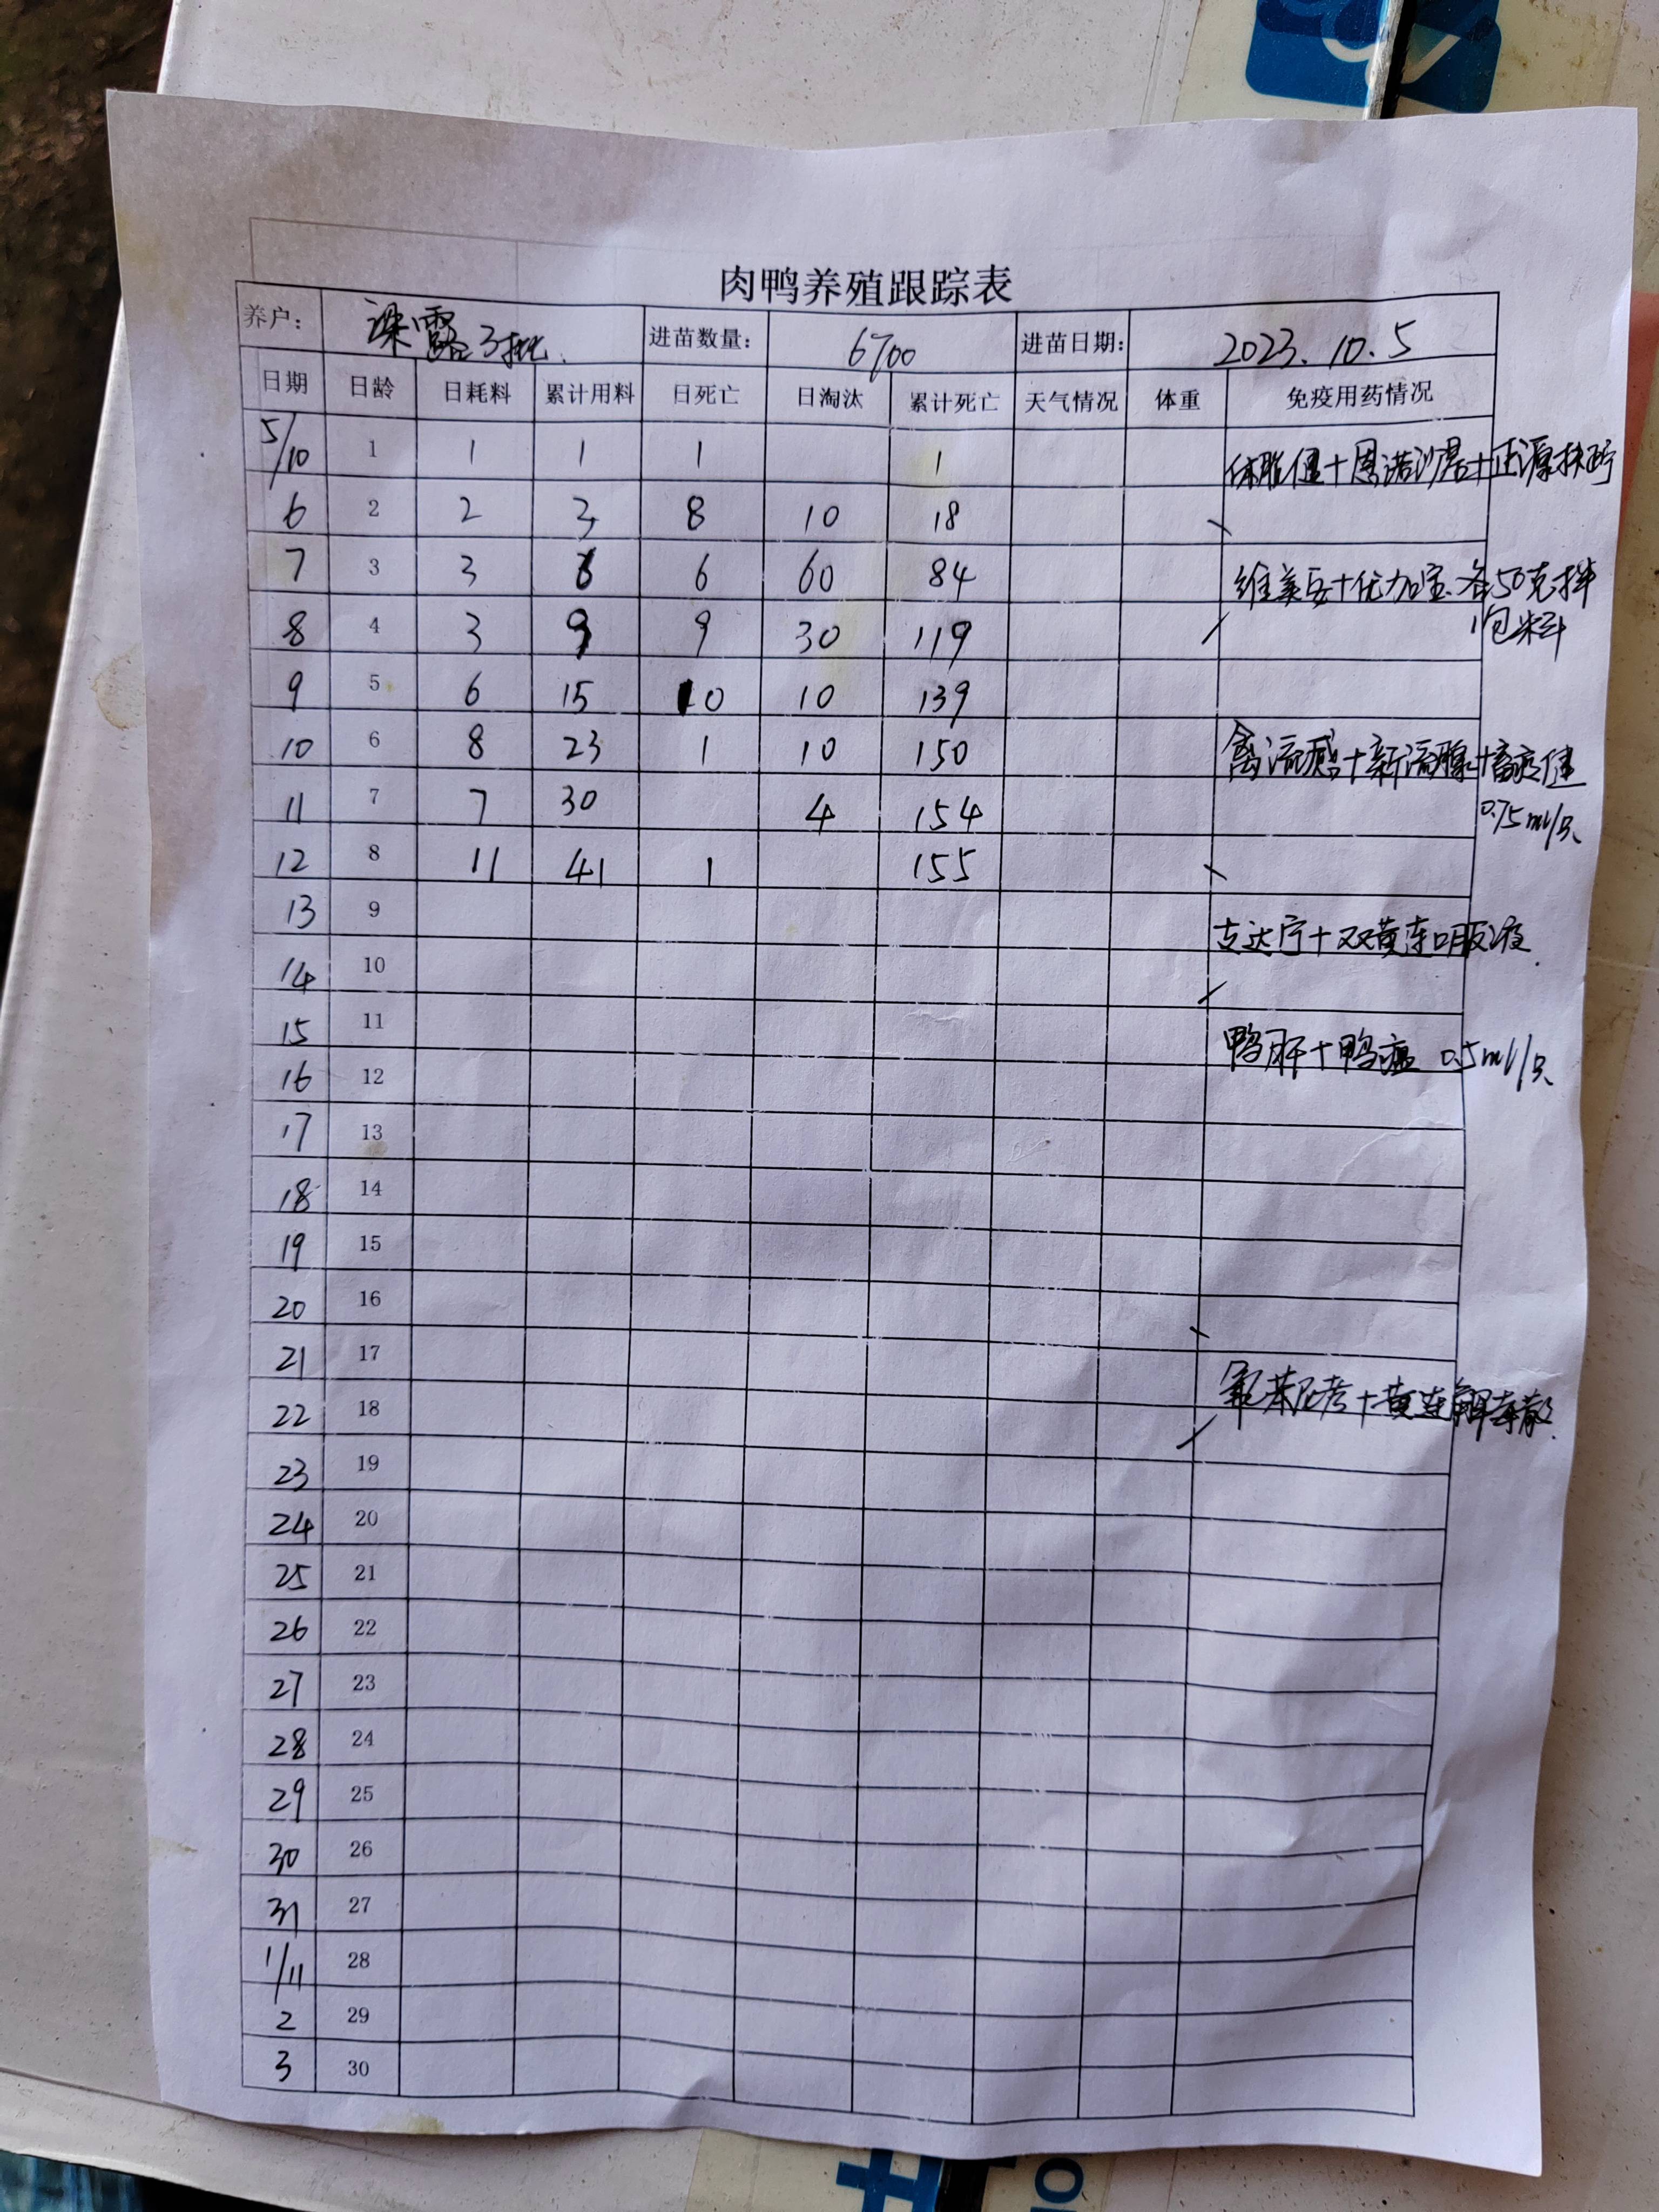 肉鸭养殖跟踪表
养户： 梁露3批. 进苗数量： 6700 进苗日期： 2023.10.5
日期 日龄 日耗料 累计用料 日死亡 日淘汰 累计死亡 天气情况 体重 免疫用药情况
5/10 1 1 1 1 1 恩诺沙星+正源
6 2 2 3 8 10 18
7 3 3 6 6 60 84 维美安+优加宝.各50克拌
8 4 3 9 9 30 119 1包料
9 5 6 15 10 10 139
10 6 8 23 1 10 150 禽流感+新流腺+畜疫健
11 7 7 30 4 154 0.75ml/只
12 8 11 41 1 155
13 9 支达宁+双黄连口服液.
14 10
15 11 鸭肝+鸭瘟 0.5ml/只
16 12
17 13
18 14
19 15
20 16
21 17 氟苯尼考+黄连解毒散.
22 18
23 19
24 20
25 21
26 22
27 23
28 24
29 25
30 26
31 27
1/11 28
2 29
3 30